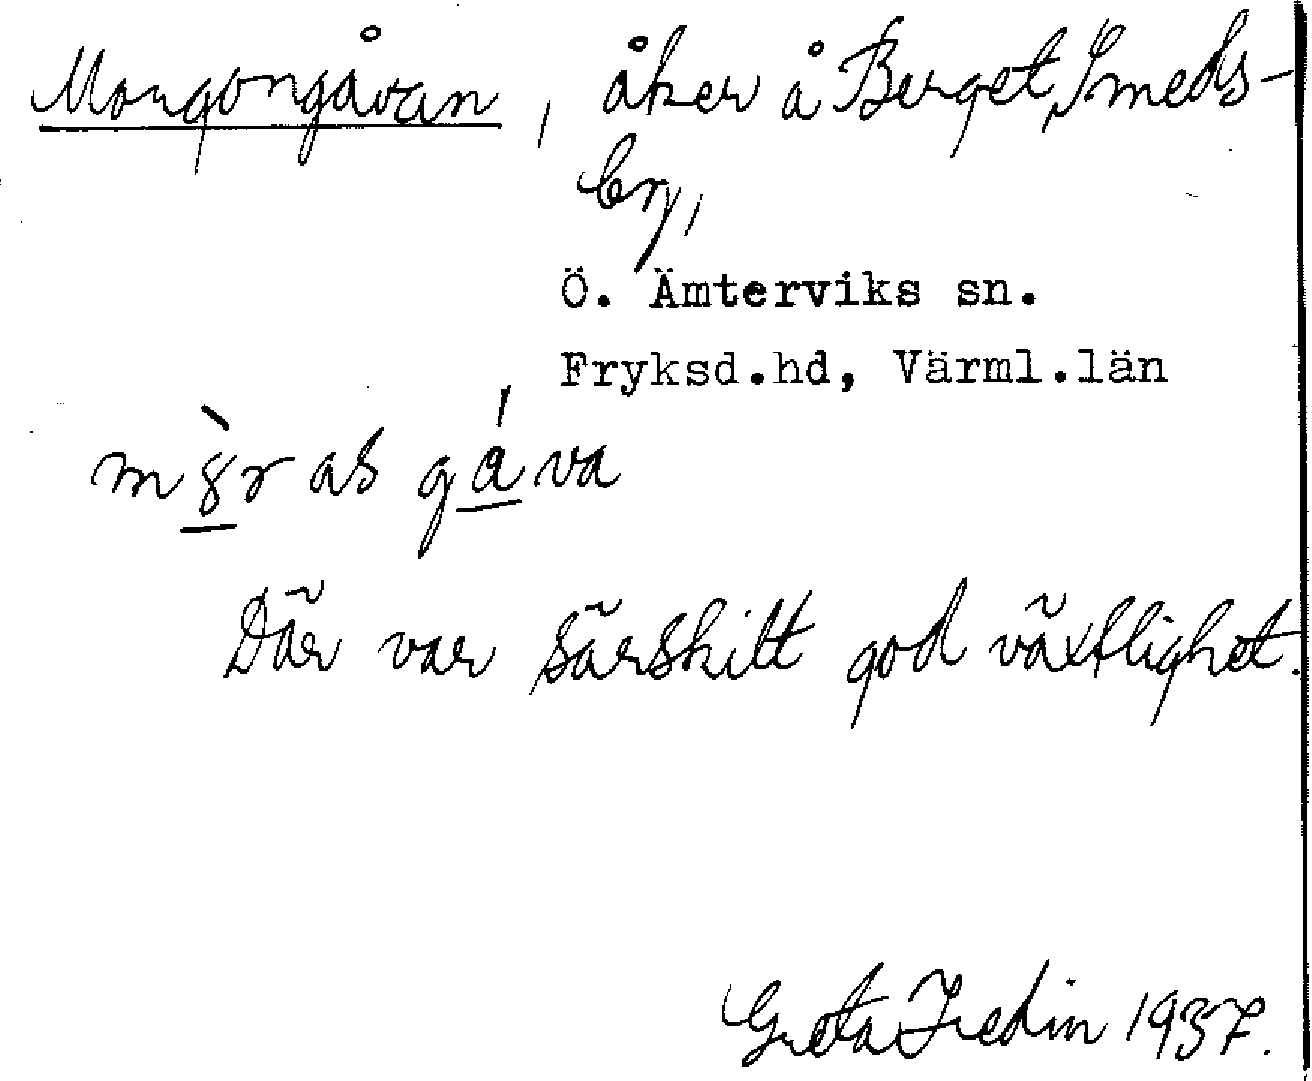 Morgongåvan, åker å Berget, Smeds-
by,
Ö. Ämterviks sn.
Fryksd.hd, Värml.län
Där var särskilt god växtlighet.
Greta Fredin 1937.